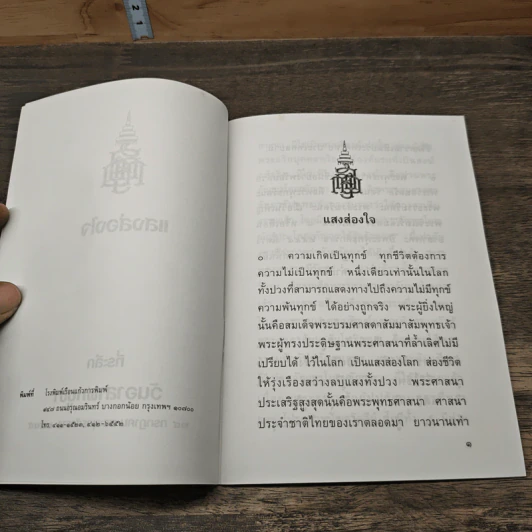 พิมพ์ที่ โรงพิมพ์เรือนแก้วการพิมพ์
๙๔๗ ถนนอรุณอมรินทร์ บางกอกน้อย กรุงเทพฯ ๑๐๗๐๐
โทร.
แสงส่องใจ
๐ ความเกิดเป็นทุกข์ ทุกชีวิตต้องการ
ความไม่เป็นทุกข์ หนึ่งเดียวเท่านั้นในโลก
ทั้งปวงที่สามารถแสดงทางไปถึงความไม่มีทุกข์
ความพ้นทุกข์ ได้อย่างถูกจริง พระผู้ยิ่งใหญ่
นั้นคือสมเด็จพระบรมศาสดาสัมมาสัมพุทธเจ้า
พระผู้ทรงประดิษฐานพระศาสนาที่ล้ำเลิศไม่มี
เปรียบได้ ไว้ในโลก เป็นแสงส่องโลก ส่องชีวิต
ให้รุ่งเรืองสว่างลบแสงทั้งปวง พระศาสนา
ประเสริฐสูงสุดนั้นคือพระพุทธศาสนา ศาสนา
ประจำชาติไทยของเราตลอดมา ยาวนานเท่า
๑
2
1